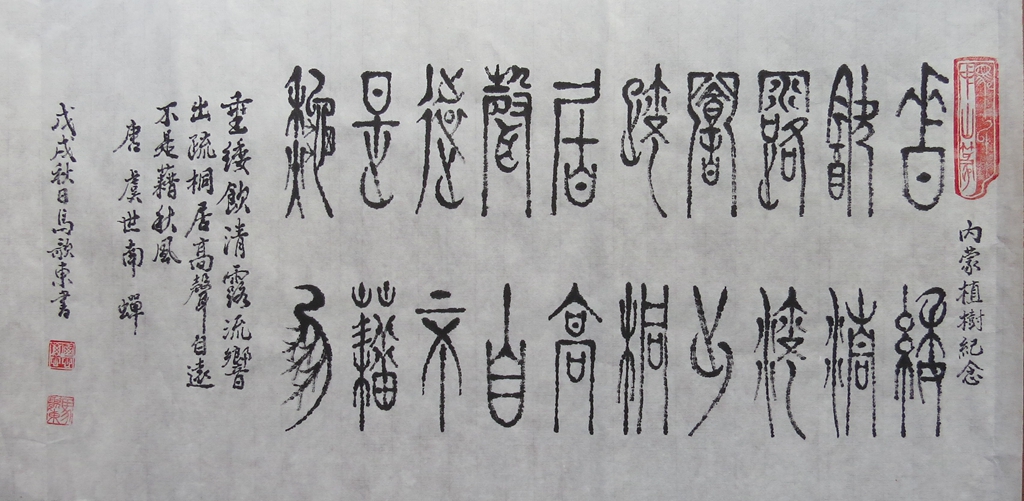 内蒙植樹紀念
垂緌
飲清
露流
響出
疏桐
居高
聲自
遠不
是藉
秋風
垂緌飲清露流響
出疏桐居高聲自遠
不是藉秋風
唐虞世南 蟬
戊戌秋日馬歌東書